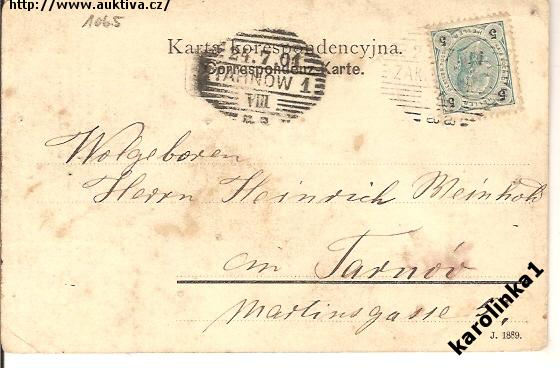 http://www.auktiva.cz/
1065
Karta korespondencyjna.
Correspondenz-Karte.
24.7.01
TARNÓW 1
VIII
ZAK
5 5
Wolgeboren
Herrn Heinrich Weinhold
in Tarnóv
Martinsgasse
J. 1889.
karolinka1